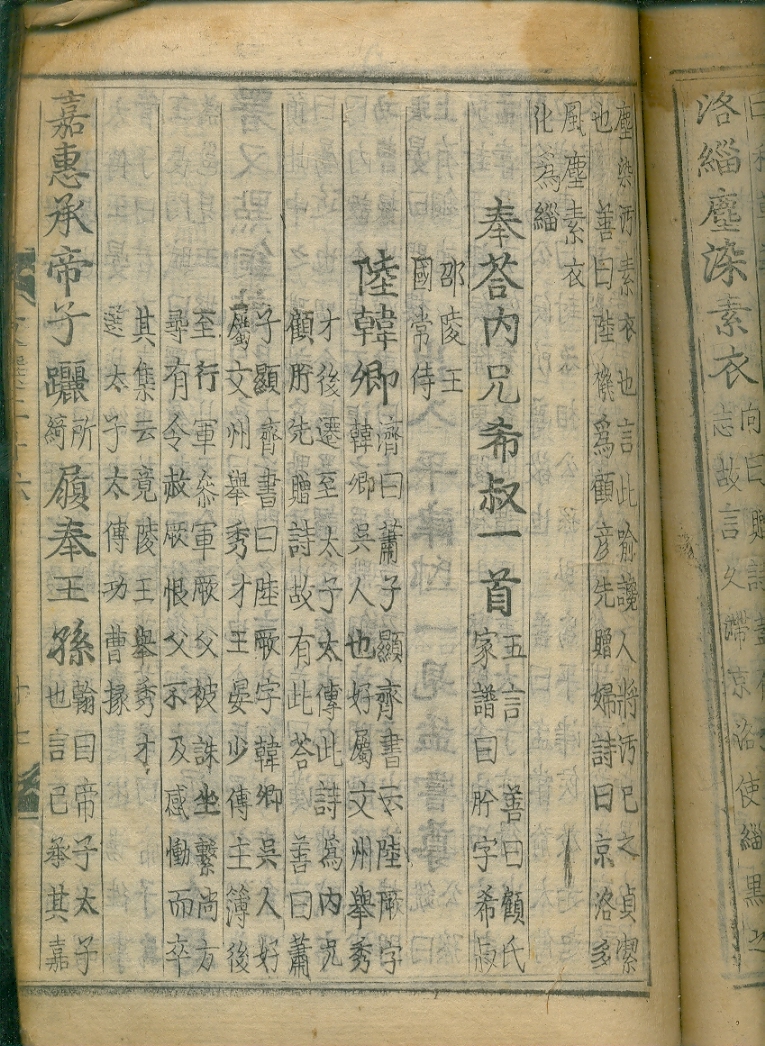 洛緇塵染素衣
志故言久滯京洛使緇黑之
塵染污素衣也言此喻讒人將污已之貞潔
也 善曰陸機為顧彦先贈婦詩曰京洛多
風塵素衣
化為緇
奉荅内兄希叔一首 五言 善曰顧氏
家譜曰肸字希叔
邵陵王
國常侍
陸韓卿 濟曰蕭子顯齊書云陸厥字
韓卿吳人也好屬文州舉秀
才後遷至太子太傅此詩為内兄
顧肸先贈詩故有此荅 善曰蕭
子顯齊書曰陸厥字韓卿吳人好
屬文州舉秀才王晏少傅主簿後
至行軍叅軍厥父被誅坐繫尚方
尋有令赦厥恨父不及感慟而卒
其集云竟陵王舉秀才
選太子太傅功曹掾
嘉惠承帝子躧所綺履奉王孫 翰曰帝子太子
也言已承其嘉